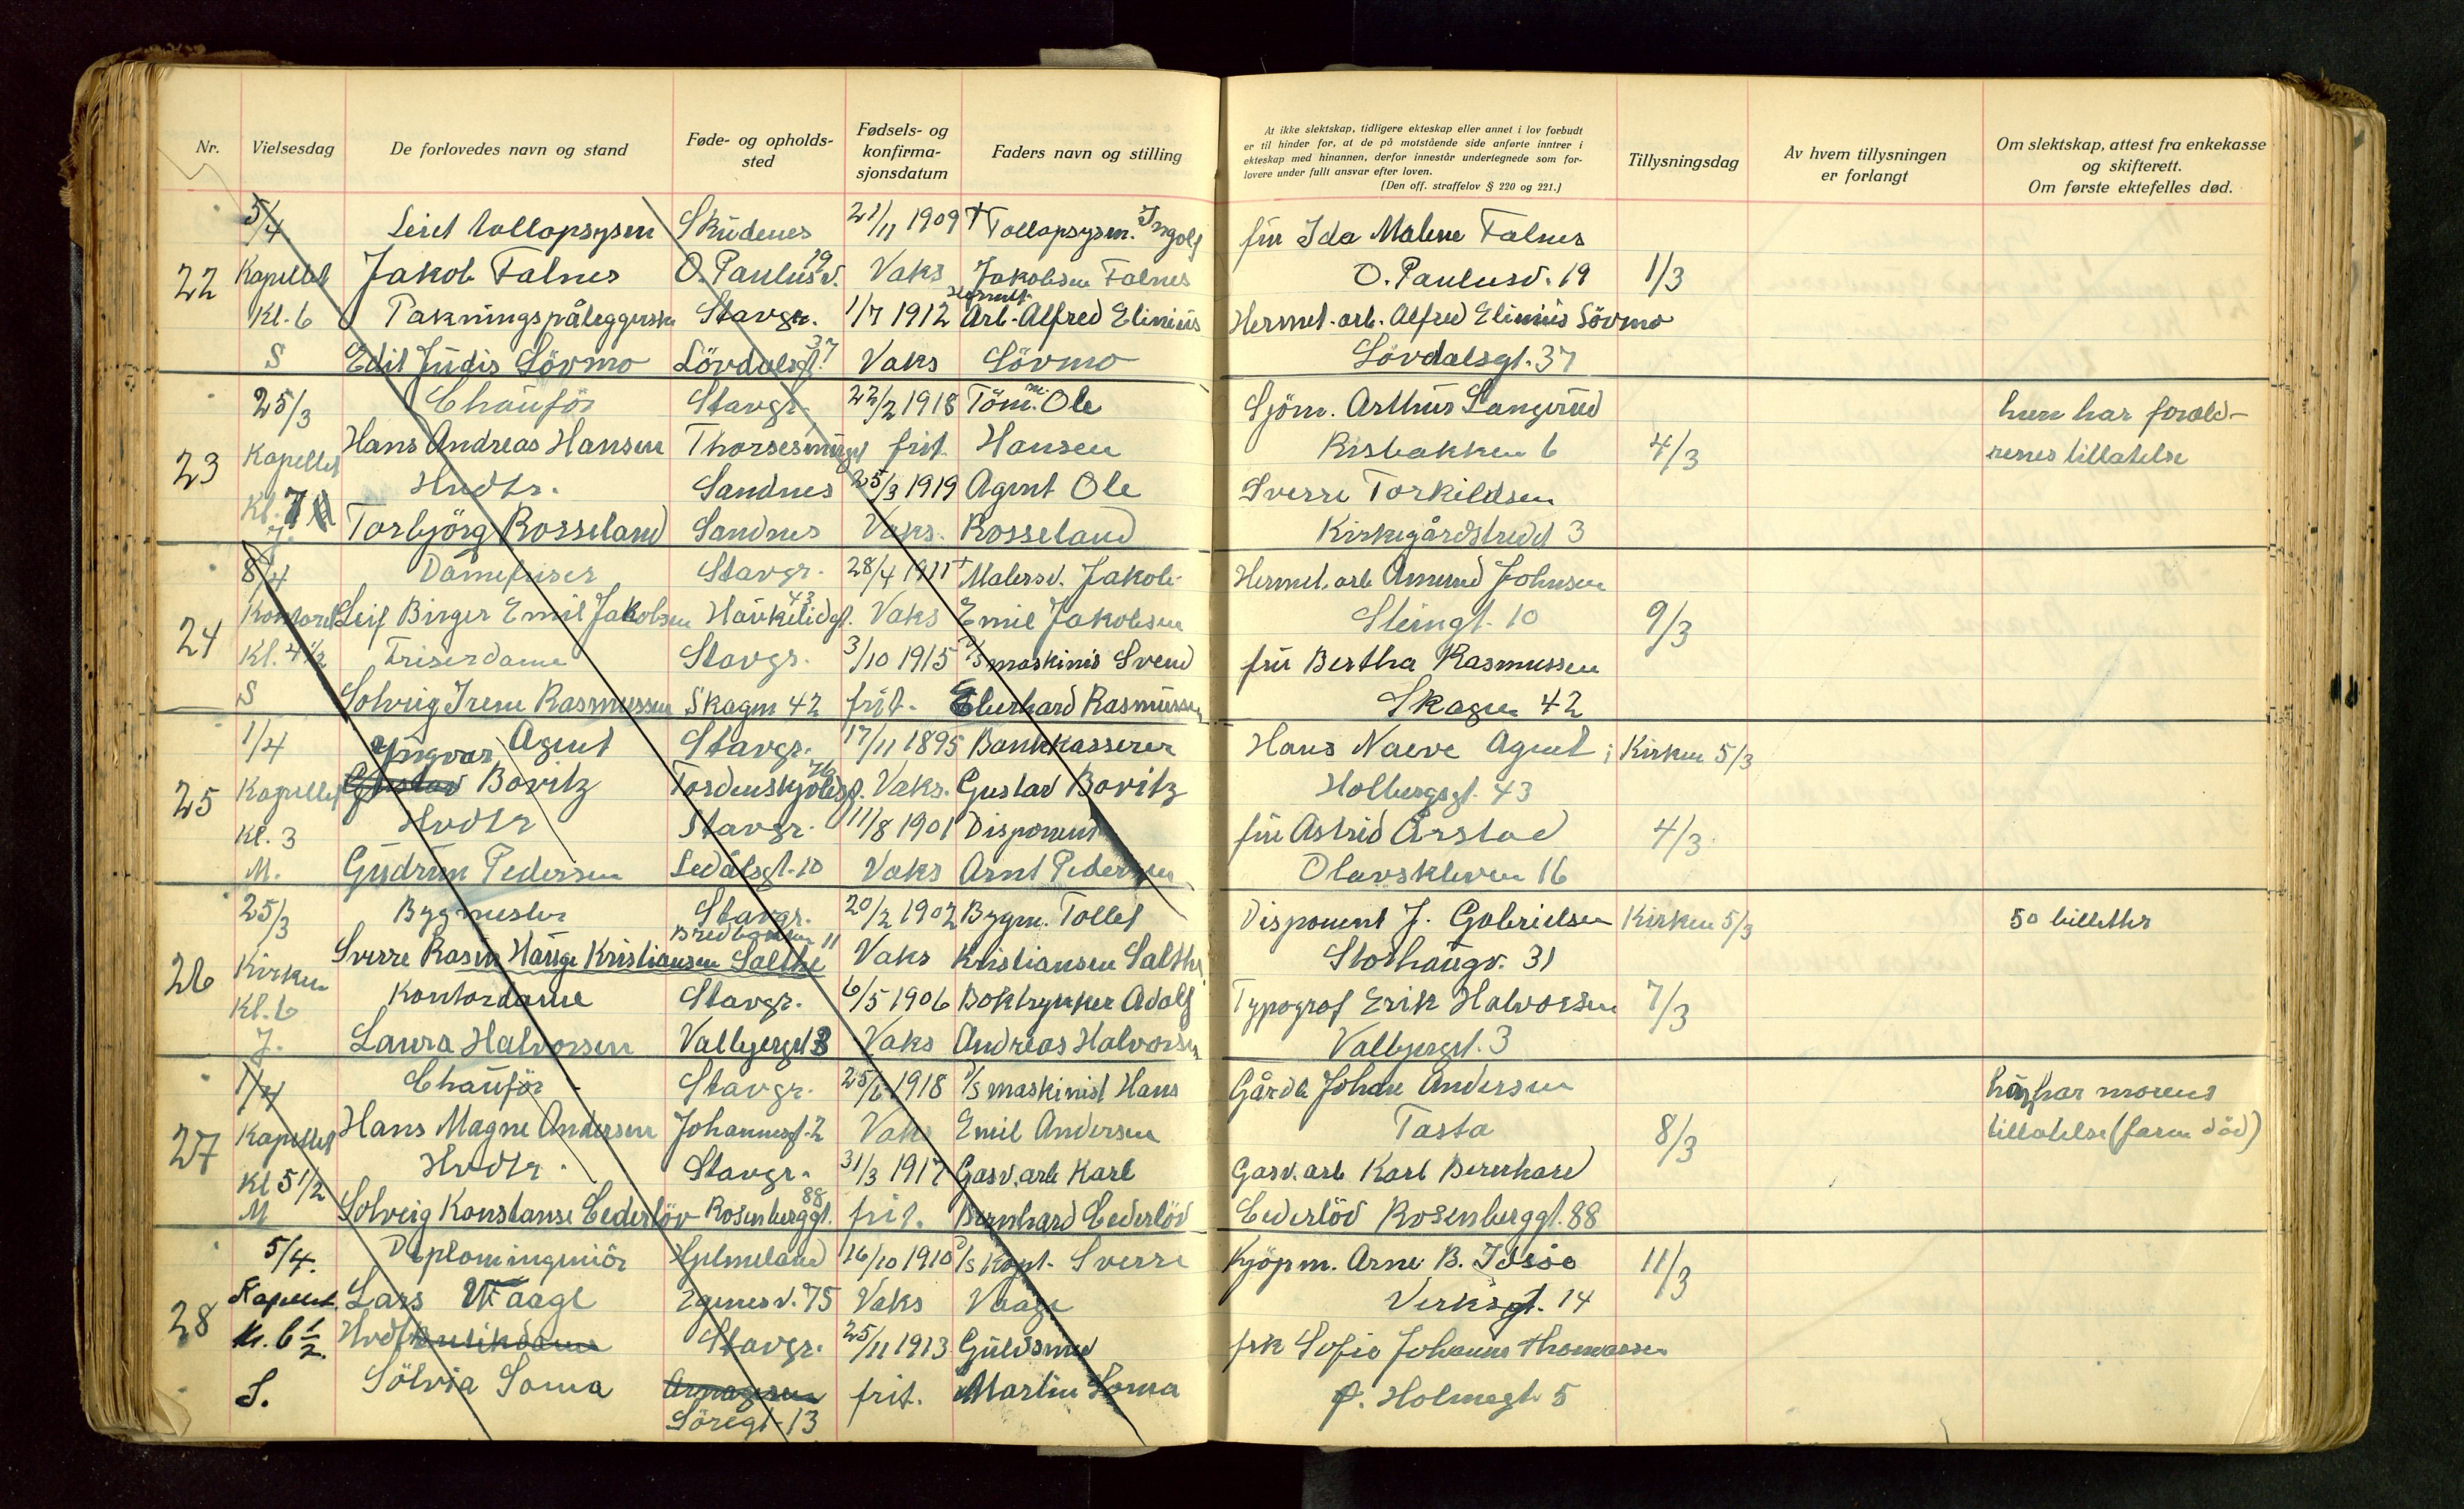 Nr. Vielsesdag De forlovedes navn og stand Føde- og opholds-sted Fødsels- og konfirma-sjonsdatum Faders navn og stilling
At ikke slektskap, tidligere ekteskap eller annet i lov forbudt
er til hinder for, at de på motstående side anførte inntrer i
ekteskap med hinannen, derfor innestår undertegnede som for-
lovere under fullt ansvar efter loven.
(Den off. straffelov § 220 og 221.)
Tillysningsdag
Av hvem tillysningen
er forlangt
Om slektskap, attest fra enkekasse
og skifterett.
Om første ektefelles død.
5/4 Skudenes 21/11 1909 † Tollopsysm. Ingolf fru Ida Malene Falnes
22 Kapellet Jakob Falnes Ø. Paulusv. 19 Vaks Jakobsen Falnes Ø. Paulusv. 19 1/3
Kl. 6 Pakningspåleggerske Stavgr. 1/7 1912 Hermet. Arb. Alfred Elinius Hermet. arb. Alfred Elinius Sövmo
S Edit Judis Sövmo Lövdalsgt. 37 Vaks Sövmo Lövdalsgt. 37
25/3 Chauför Stavgr. 22/2 1918 Töm.m. Ole Sjöm. Arthur Langerud hun har foreld-
23 Kapellet Hans Andreas Hansen frit. Hansen Risbakken 6 4/3 renes tillatelse
Hvdtr. Sandnes 25/3 1919 Agent Ole Sverre Torkildsen
Kl. 7 J. Torbjörg Rosseland Sandnes Vaks. Rosseland Kirkegårdstredet 3
8/4 Damefriser Stavgr. 28/4 1911 † Malersv. Jakob Hermet. arb Amund Johnsen
24 Kontoret Leif Birger Emil Jakobsen Haukelidgt. 43 Vaks Emil Jakobsen Steingt. 10 9/3
Kl. 4 1/2 Friserdame Stavgr. 3/10 1915 D/S maskinis Svend fru Bertha Rasmussen
S Solveig Irene Rasmussen Skagen 42 frit. Eberhard Rasmussen Skagen 42
1/4 Agent Stavgr. 17/11 1895 Bankkasserer Hans Naeve Agent i Kirken 5/3
25 Kapellet Yngvar Gustav Bovitz Tordenskjoldsgt. 76 Vaks. Gustav Bovitz Holbergsgt. 43
Kl. 3 Hvdtr Stavgr. 11/8 1901 Disponent fru Astrid Årstad 4/3
M. Gudrun Pedersen Ledålsgt. 10 Vaks Arnt Pedersen Olavskleven 16
25/3 Bygmester Stavgr. 20/2 1902 Bygm. Tollef Disponent J. Gabrielsen Kirken 5/3 50 billetter
26 Kirken Sverre Hauge Kristiansen Salthe Bredbakken 11 Vaks Kristiansen Salthe Storhaugv. 31
Kl. 6 Kontordame Stavgr. 6/5 1906 Boktrykker Adolf Typograf Erik Halvorsen 7/3
J. Laura Halvorsen Valbjerget 3 Vaks Andreas Halvorsen Valbjergt. 3
1/4 Chauför Stavgr. 25/6 1918 D/S maskinist Hans Gårdb Johan Andersen har morens
27 Kapellet Hans Magne Andersen Johannesgt. 2 Vaks Emil Andersen Tasta 8/3 tillatelse (faren död)
Kl 5 1/2 Hvdtr. Stavgr. 31/3 1917 Gasv. arb Karl Gasv. arb Karl Bernhard
M Solveig Konstanse Cederlöv Rosenberggt. 88 frit. Bernhard Cederlöv Cederlöv Rosenberggt. 88
5/4. Diplomingeniör Hjelmeland 16/10 1910 D/S Kapt. Sverre Kjöpm. Arne B. Idsöe 11/3
28 Kapellet. Lars Waage Egenesv. 75 Vaks Vaage Verksgt. 14
Kl. 6 1/2. Hvdtr. Butikdame Stavgr. 25/11 1913 Guldsmed frk Sofie Johanne Thomassen
S. Sölvia Soma frit. Martin Soma Ø. Holmegt 5
Söregt. 13